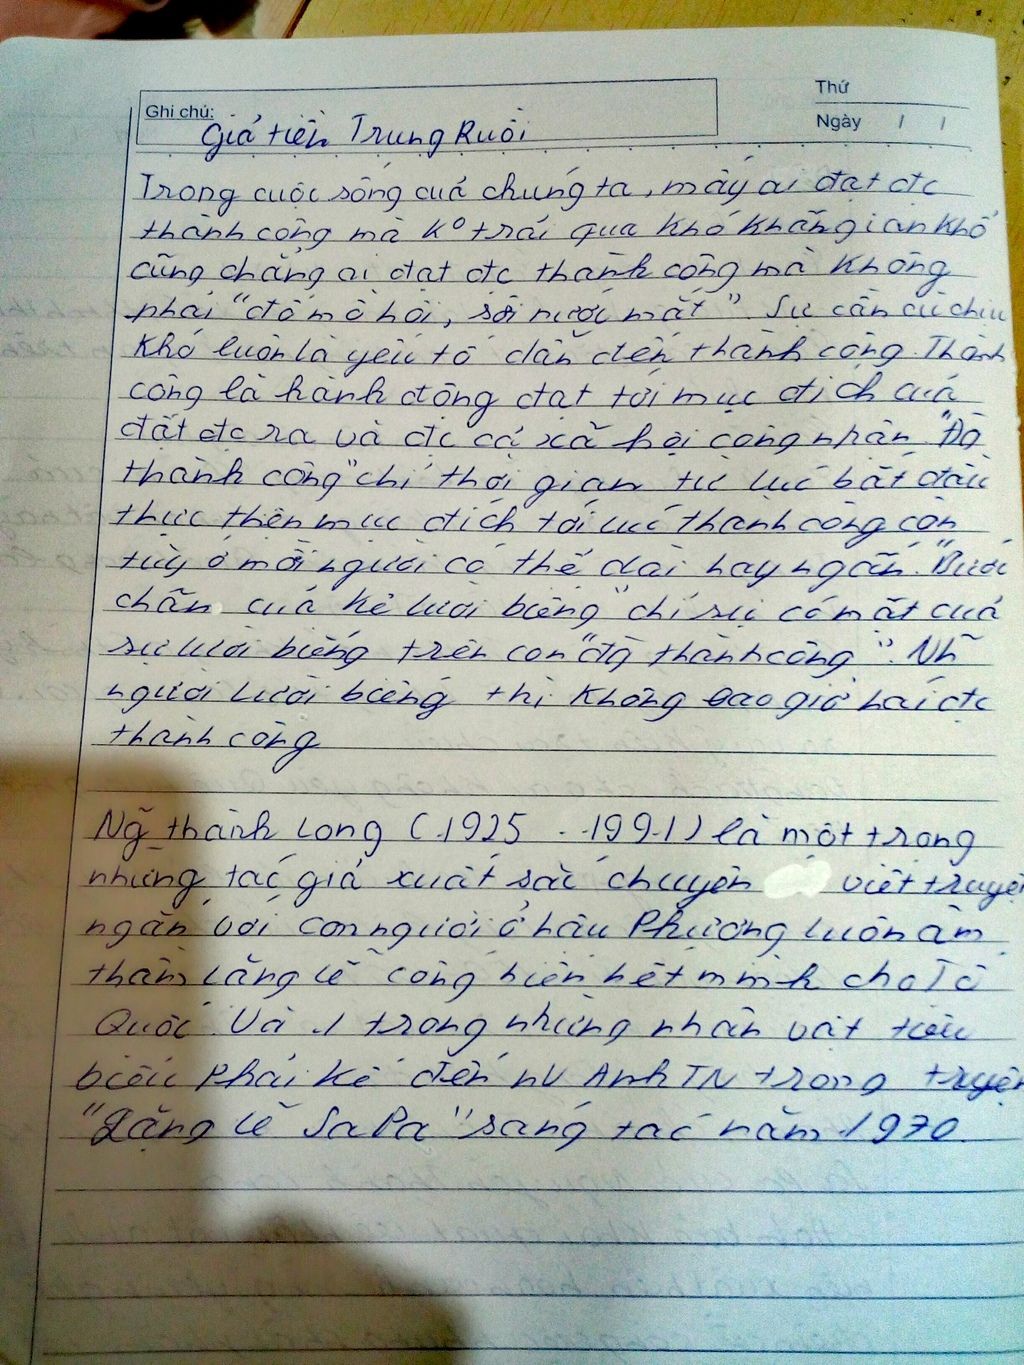 Thứ
Ghi chú:
Ngày / /
Giá tiền Trung Ruồi
Trong cuộc sống cuả chúng ta, mấy ai đạt đc
thành công mà k° trải qua khó khăn gian khổ
cũng chẳng ai đạt đc thành công mà không
phải "đổ mồ hôi, sôi nước mắt". Sự cần cù chịu
khó luôn là yếu tố dẫn đến thành công. Thành
công là hành động đạt tới mục đích cuả
đặt đc ra và đc cả xã hội công nhận. "Độ
thành công" chỉ thời gian từ lúc bắt đầu
thực thiện mục đích tới lúc thành công còn
tùy ở mỗi người có thể dài hay ngắn. "Bước
chân cuả kẻ lười biếng" chỉ sự có mặt cuả
sự lười biếng trên con "độ thành công". Nh~
người lười biếng thì không bao giờ hái đc
thành công
Ng~ thành Long (1925 - 1991) là một trong
những tác giả xuất sắc chuyên viết truyện
ngắn với con người ở hậu phương luôn âm
thầm lặng lẽ cống hiến hết mình cho Tổ
Quốc. Và 1 trong những nhân vật tiêu
biểu phải kể đến nv Anh TN trong truyện
"Lặng lẽ SaPa" sáng tác năm 1970.